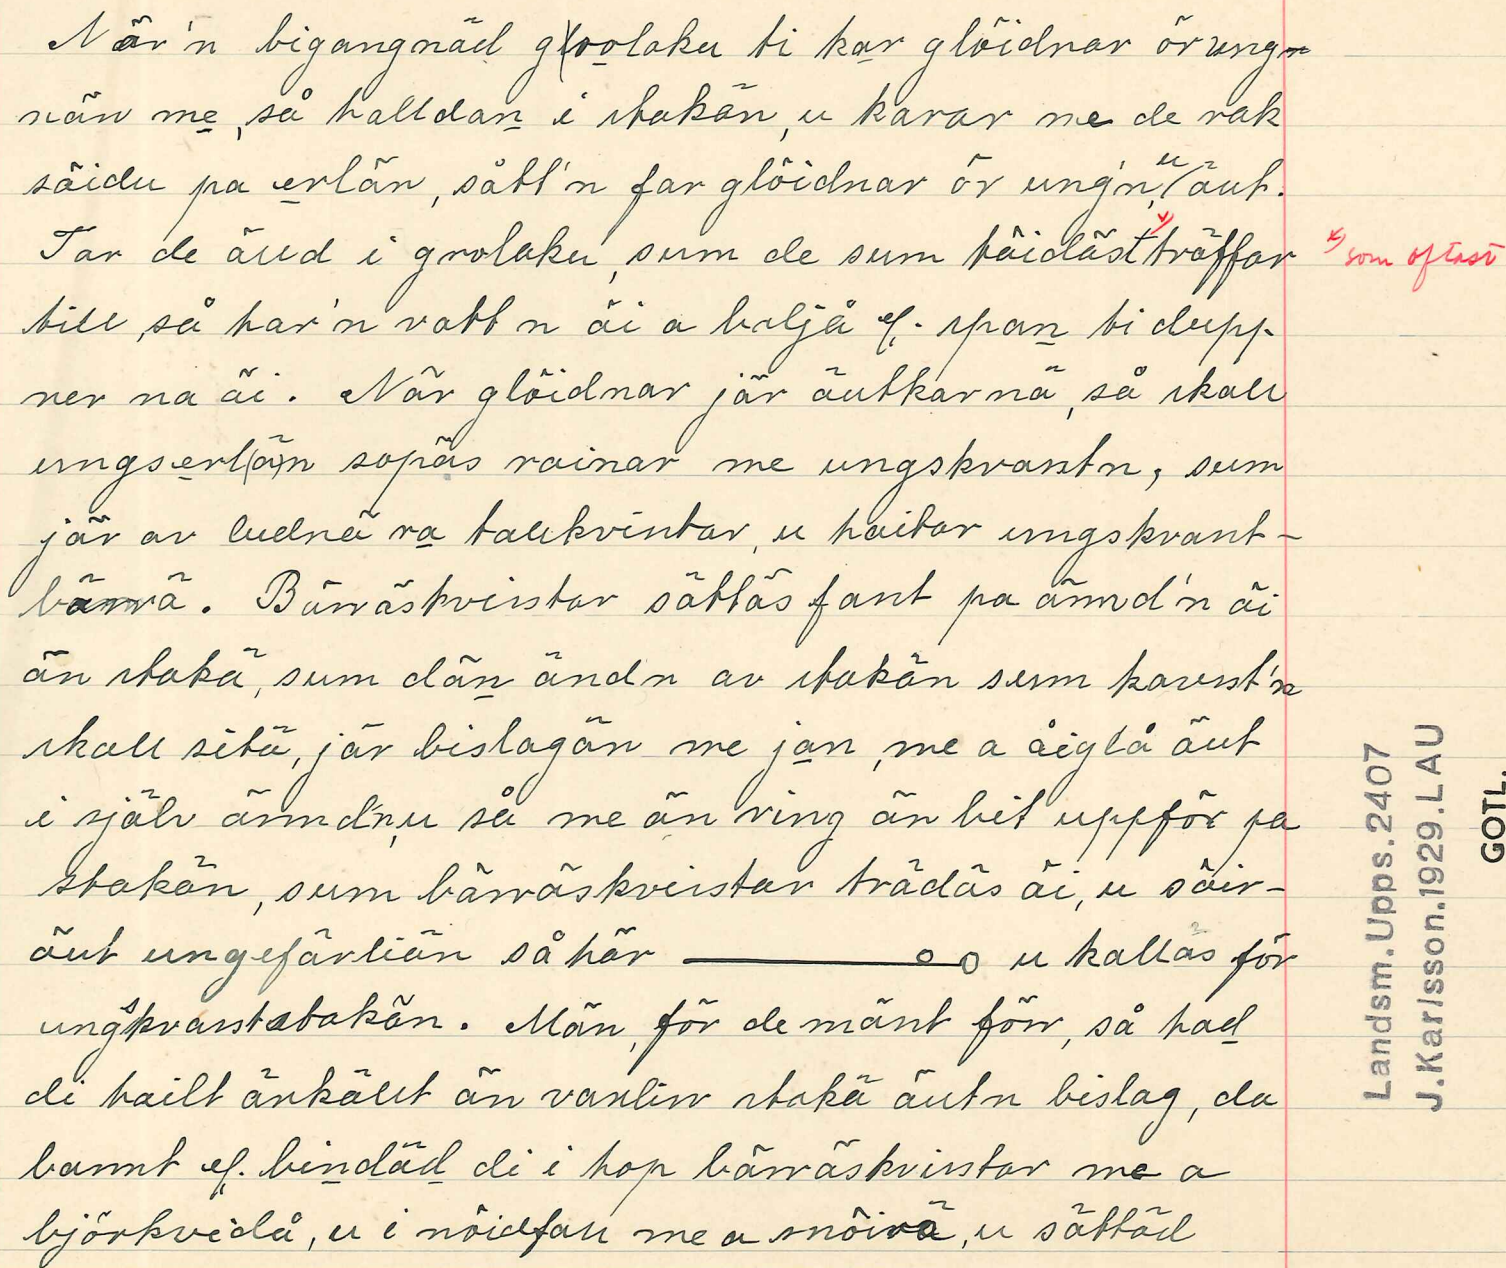 När'n bigangnäd groolaku ti kar glöidnar ör ung-
nän me, så halldan i stakän, u karar me de rak
säidu pa erlän, sått'n far glöidnar ör ung'n, u äut.
Tar de äud i grolaku, sum de sum täidäst x) träffar x) som oftast
till, så har'n vattn äi a baljå el. span ti dupp-
ner na äi. När glöidnar jär äutkarnä, så skall
ungserl(ä)n sopäs rainar me ungskvastn, sum
jär av ludnä ra tallkvistar, u haitar ungskvast-
bärrä. Bärräskvistar sättäs fast pa ännd'n äi
än stakä, sum dän ändn av stakän sum kvast'n
skall sitä, jär bislagän me jan, me a äiglå äut
i själv ännd'n, u så me än ring än bit uppför pa
stakän, sum bärräskvistar trädäs äi, u söir-
äut ungefärliän så här u kallas för
ungskvaststakän. Män, för de mäst förr, så had
di hailt änkält än vanlin stakä äutn bislag, da
bannt el. bindäd di i hop bärräskvistar me a
björkvidå, u i nöidfall me a snöirä, u sättäd
Landsm. Upps. 2407
J. Karlsson. 1929. LAU
GOTL.